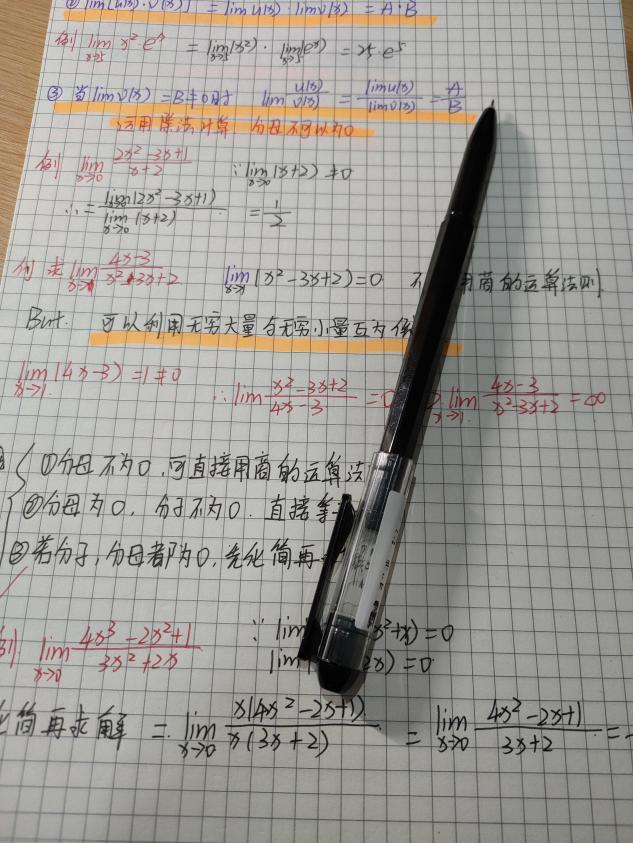 ② lim[u(x)·v(x)] = lim u(x)·lim v(x) = A·B
例 lim x→5 x²·eˣ = lim x→5 (x²)· lim x→5 (eˣ) = 25·e⁵
③ 当 lim v(x) = B ≠ 0时 lim u(x)/v(x) = lim u(x)/lim v(x) = A/B
运用除法计算 分母不可以为0
例 lim x→0 2x²-3x+1/x+2 ∵ lim x→0 (x+2) ≠ 0
∴ = lim x→0 (2x²-3x+1)/lim x→0 (x+2) = 1/2
例 求 lim x→1 4x-3/x²-3x+2 lim x→1 (x²-3x+2)=0 不 用商的运算法则
But. 可以利用无穷大量与无穷小量互为
lim x→1 (4x-3) = 1 ≠ 0 ∴ lim x²-3x+2/4x-3 = 0 lim x→1 4x-3/x²-3x+2 = ∞
①分母不为0,可直接用商的运算法
②分母为0, 分子不为0. 直接等
③若分子,分母都为0,先化简再
例 lim x→0 4x³-2x²+1/3x²+2x ∵ lim x²+x) = 0
lim 2x) = 0
化简再求解 = lim x→0 x(4x²-2x+1)/x(3x+2) = lim x→0 4x²-2x+1/3x+2 =